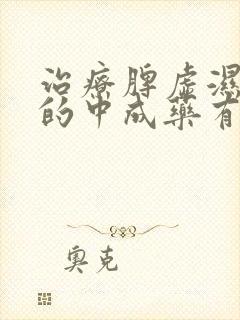 治療脾虛濕
的中成藥有
奧克